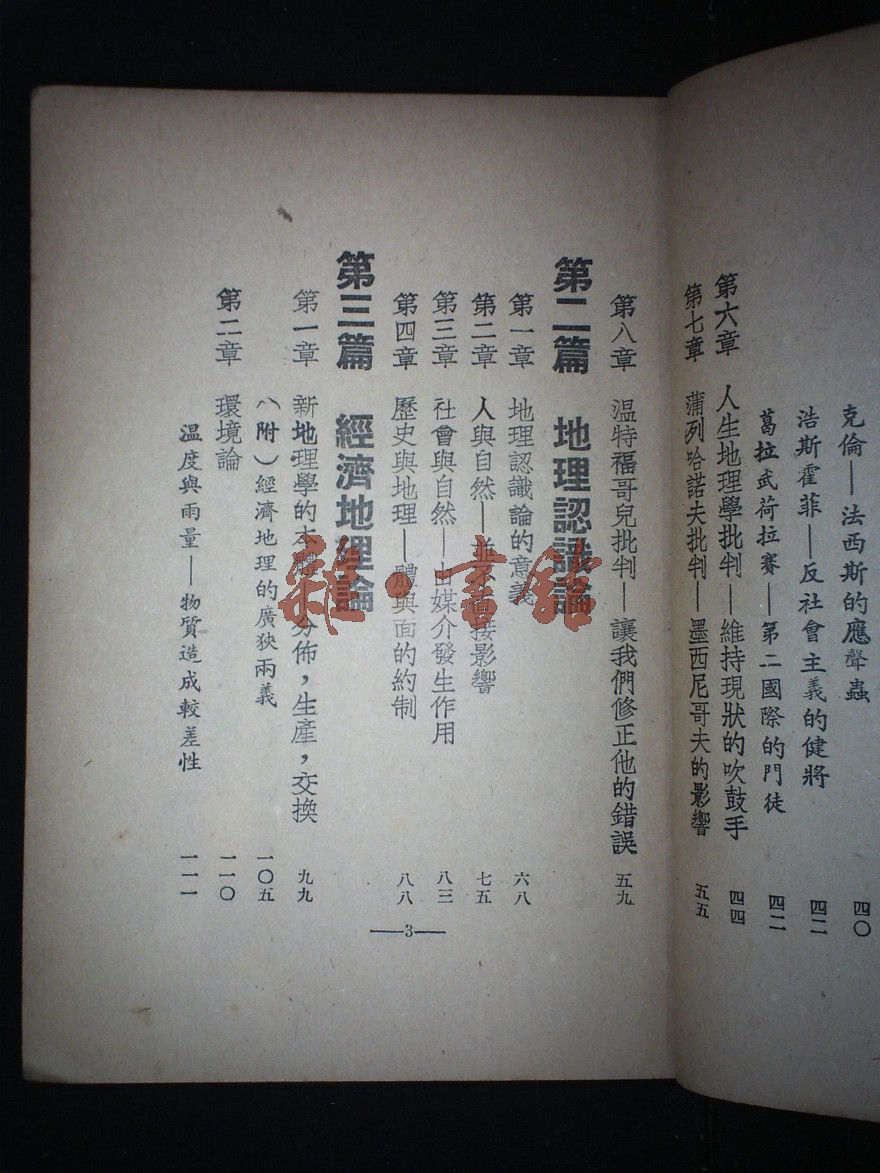 克倫—法西斯的應聲蟲 四〇
浩斯霍菲—反社會主義的健將 四二
葛拉武荷拉賽—第二國際的門徒 四二
第六章 人生地理學批判—維持現狀的吹鼓手 四四
第七章 蒲列哈諾夫批判—墨西尼哥夫的影響 五五
第八章 温特福哥兒批判—讓我們修正他的錯誤 五九
第二篇 地理認識論
第一章 地理認識論的意義 六八
第二章 人與自然—並不直接影響 七五
第三章 社會與自然—由媒介發生作用 八三
第四章 歷史與地理—體與面的約制 八八
第三篇 經濟地理論
第一章 新地理學的本體—分佈，生產，交換 九九
（附）經濟地理的廣狹兩義 一〇五
第二章 環境論 一一〇
溫度與雨量—物質造成較差性 一一一
—3—
雜·書館